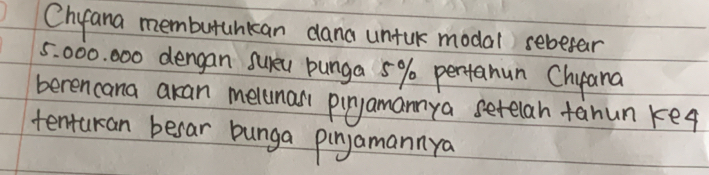 Chyfana membutuhkan dana untuk modal sebesar
5.000.000 dengan suku bunga 5% pertahun Chyfana
berencana akan melunasi pinjamannya setelah tahun ke4
tentukan besar bunga pinjamannya